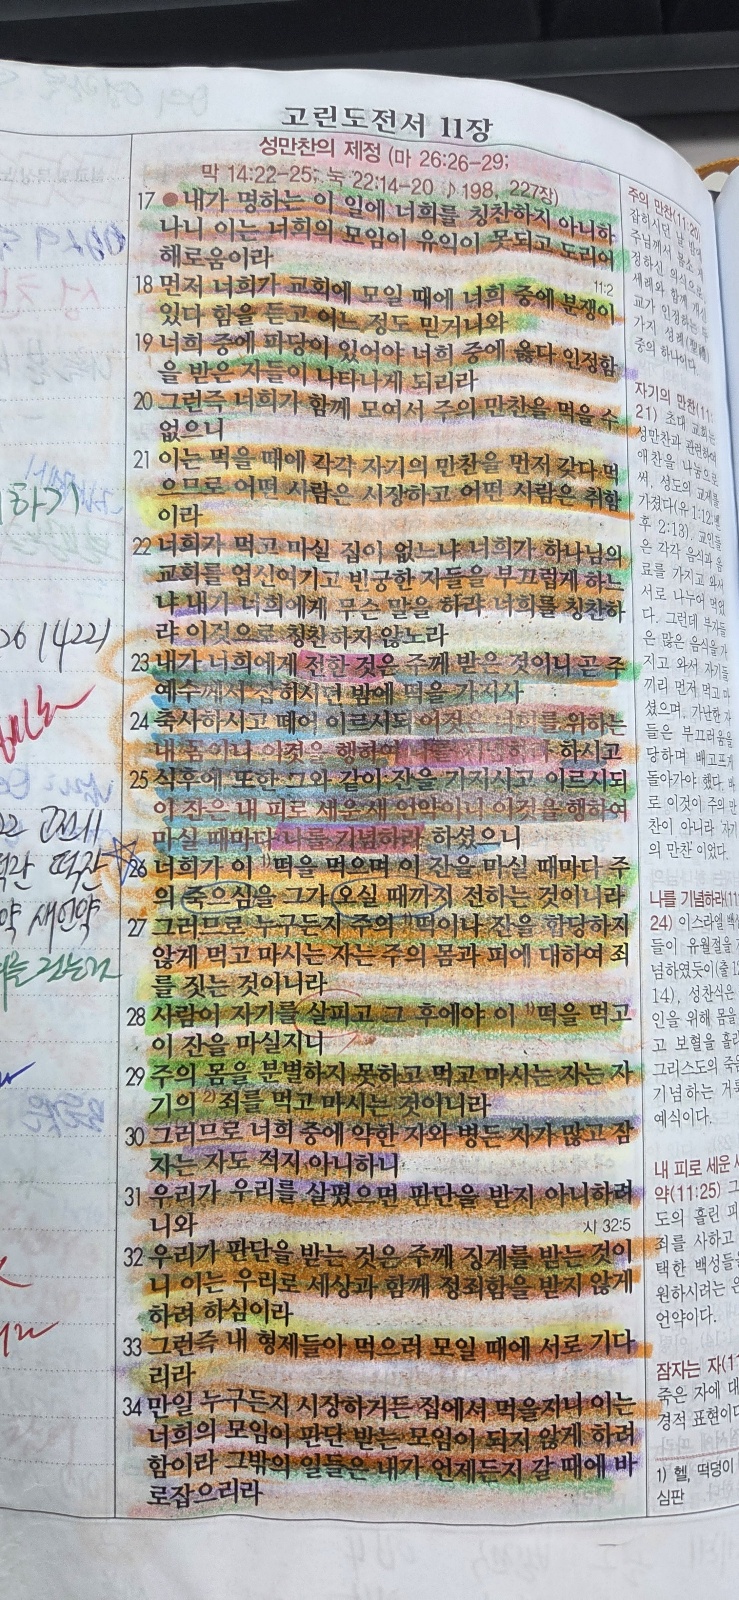 고린도전서 11장
성만찬의 제정 (마 26:26-29;
막 14:22-25; 눅 22:14-20 ♪ 198, 227장)
17 ●내가 명하는 이 일에 너희를 칭찬하지 아니하
나니 이는 너희의 모임이 유익이 못되고 도리어
해로움이라
11:2
18 먼저 너희가 교회에 모일 때에 너희 중에 분쟁이
있다 함을 듣고 어느 정도 믿거니와
19 너희 중에 파당이 있어야 너희 중에 옳다 인정함
을 받은 자들이 나타나게 되리라
20 그런즉 너희가 함께 모여서 주의 만찬을 먹을 수
없으니
21 이는 먹을 때에 각각 자기의 만찬을 먼저 갖다 먹
으므로 어떤 사람은 시장하고 어떤 사람은 취함
이라
22 너희가 먹고 마실 집이 없느냐 너희가 하나님의
교회를 업신여기고 빈궁한 자들을 부끄럽게 하느
냐 내가 너희에게 무슨 말을 하랴 너희를 칭찬하
랴 이것으로 칭찬하지 않노라
23 내가 너희에게 전한 것은 주께 받은 것이니 곧 주
예수께서 잡히시던 밤에 떡을 가지사
24 축사하시고 떼어 이르시되 이것은 너희를 위하는
내 몸이니 이것을 행하여 나를 기념하라 하시고
25 식후에 또한 그와 같이 잔을 가지시고 이르시되
이 잔은 내 피로 세운 새 언약이니 이것을 행하여
마실 때마다 나를 기념하라 하셨으니
26 너희가 이 1)떡을 먹으며 이 잔을 마실 때마다 주
의 죽으심을 그가 오실 때까지 전하는 것이니라
27 그러므로 누구든지 주의 1)떡이나 잔을 합당하지
않게 먹고 마시는 자는 주의 몸과 피에 대하여 죄
를 짓는 것이니라
28 사람이 자기를 살피고 그 후에야 이 1)떡을 먹고
이 잔을 마실지니
29 주의 몸을 분별하지 못하고 먹고 마시는 자는 자
기의 2)죄를 먹고 마시는 것이니라
30 그러므로 너희 중에 약한 자와 병든 자가 많고 잠
자는 자도 적지 아니하니
31 우리가 우리를 살폈으면 판단을 받지 아니하려
니와
시 32:5
32 우리가 판단을 받는 것은 주께 징계를 받는 것이
니 이는 우리로 세상과 함께 정죄함을 받지 않게
하려 하심이라
33 그런즉 내 형제들아 먹으러 모일 때에 서로 기다
리라
34 만일 누구든지 시장하거든 집에서 먹을지니 이는
너희의 모임이 판단 받는 모임이 되지 않게 하려
함이라 그밖의 일들은 내가 언제든지 갈 때에 바
로잡으리라
주의 만찬(11:20)
잡히시던 날 밤에
주님께서 몸소 제
정하신 의식으로,
세례와 함께 개신
교가 인정하는 두
가지 성례(聖禮)
중의 하나이다.
자기의 만찬(11:
21) 초대 교회는
성만찬과 관련하여
애찬을 나눔으로
써, 성도의 교제를
가졌다(유 1:12;벧
후 2:13). 교인들
은 각각 음식과 음
료를 가지고 와서
서로 나누어 먹었
다. 그런데 부자들
은 많은 음식을 가
지고 와서 자기들
끼리 먼저 먹고 마
셨으며, 가난한 자
들은 부끄러움을
당하며 배고프게
돌아가야 했다. 바
로 이것이 주의 만
찬이 아니라 '자기
의 만찬'이었다.
나를 기념하라(11:
24) 이스라엘 백성
들이 유월절을 기
념하였듯이(출 12:
14), 성찬식은
인을 위해 몸을
고 보혈을 흘리
그리스도의 죽음
기념하는 거룩
예식이다.
내 피로 세운 새
약(11:25) 그
도의 흘린 피
죄를 사하고
택한 백성들을
원하시려는 은
언약이다.
잠자는 자(11
죽은 자에 대
경적 표현이다
1) 헬, 떡덩이
심판
하기
26 14221
떡잔 떡잔
약 새언약